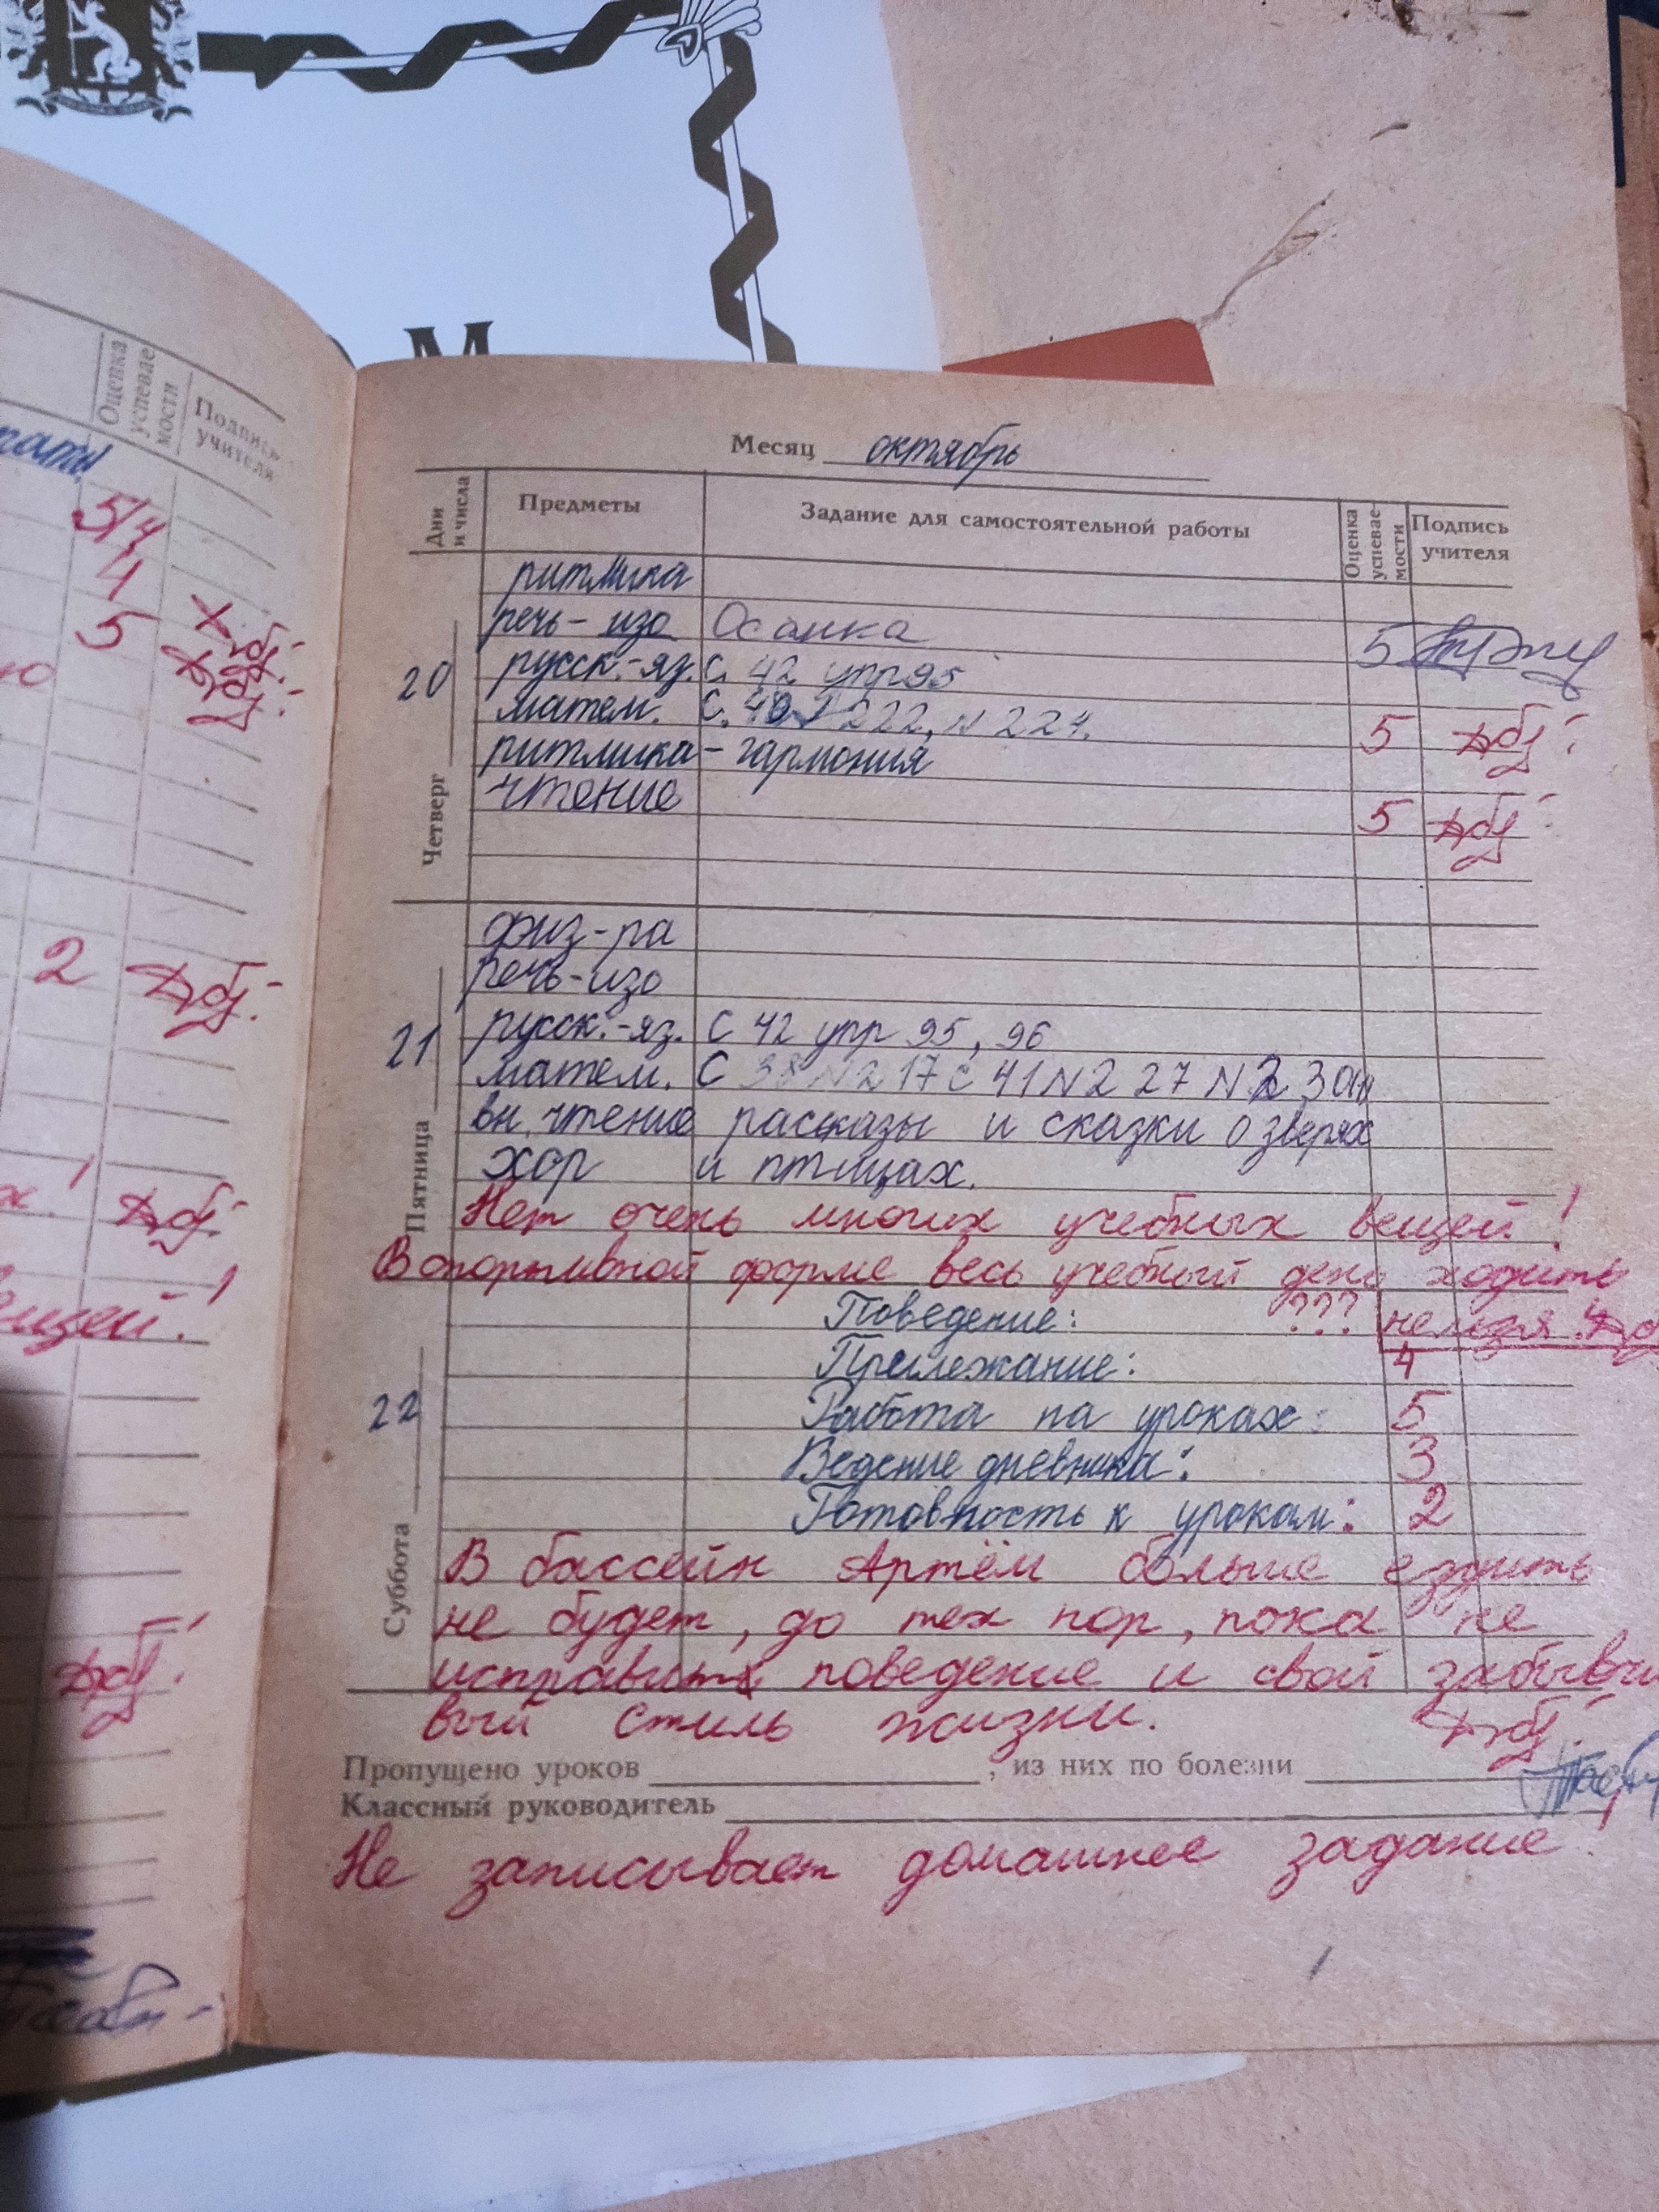 М
Оценка успевае мости
Подпись учителя
5/4
4
5
2
!
вещей!
Месяц октябрь
Дни и числа
Предметы
Задание для самостоятельной работы
Оценка успевае- мости
Подпись учителя
Четверг 20
ритмика
речь-изо Осанка 5
русск.-яз. с. 42 упр95
матем. С. 40 N 222, N 224. 5
ритмика-гармония
чтение 5
Пятница 21
физ-ра
речь-изо
русск.-яз. С 42 упр 95, 96
матем. С 38 N 217 С 41 N 227 N 230
вн. чтение рассказы и сказки о зверях
хор и птицах.
Нет очень многих учебных вещей!
В спортивной форме весь учебный день ходить
нельзя!
Суббота 22
Поведение: ???
Прилежание: 4
Работа на уроках: 5
Ведение дневника: 3
Готовность к урокам: 2
В бассейн Артём больше ездить
не будет, до тех пор, пока не
исправит поведение и свой забывчи
вый стиль жизни.
Пропущено уроков , из них по болезни
Классный руководитель
Не записывает домашнее задание!